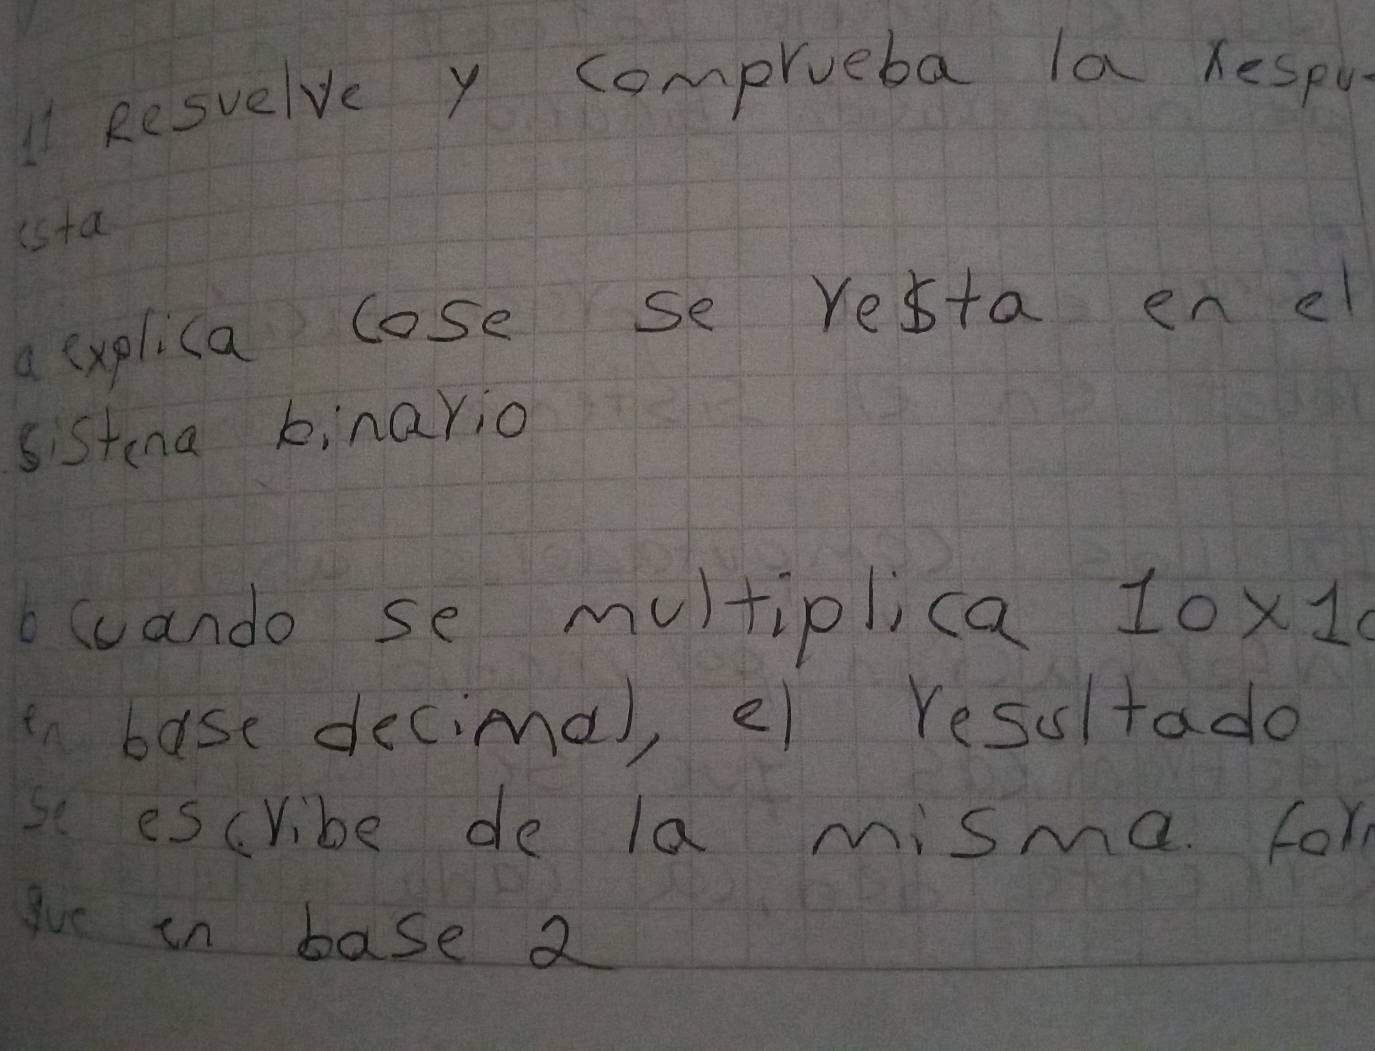 11 Resuelve y comprueba la respu-
esta
a explica cose se resta en el
sistena binario
b cuando se multiplica 10x10
en base decimal, el resultado
se escribe de la misma. for
que en base 2